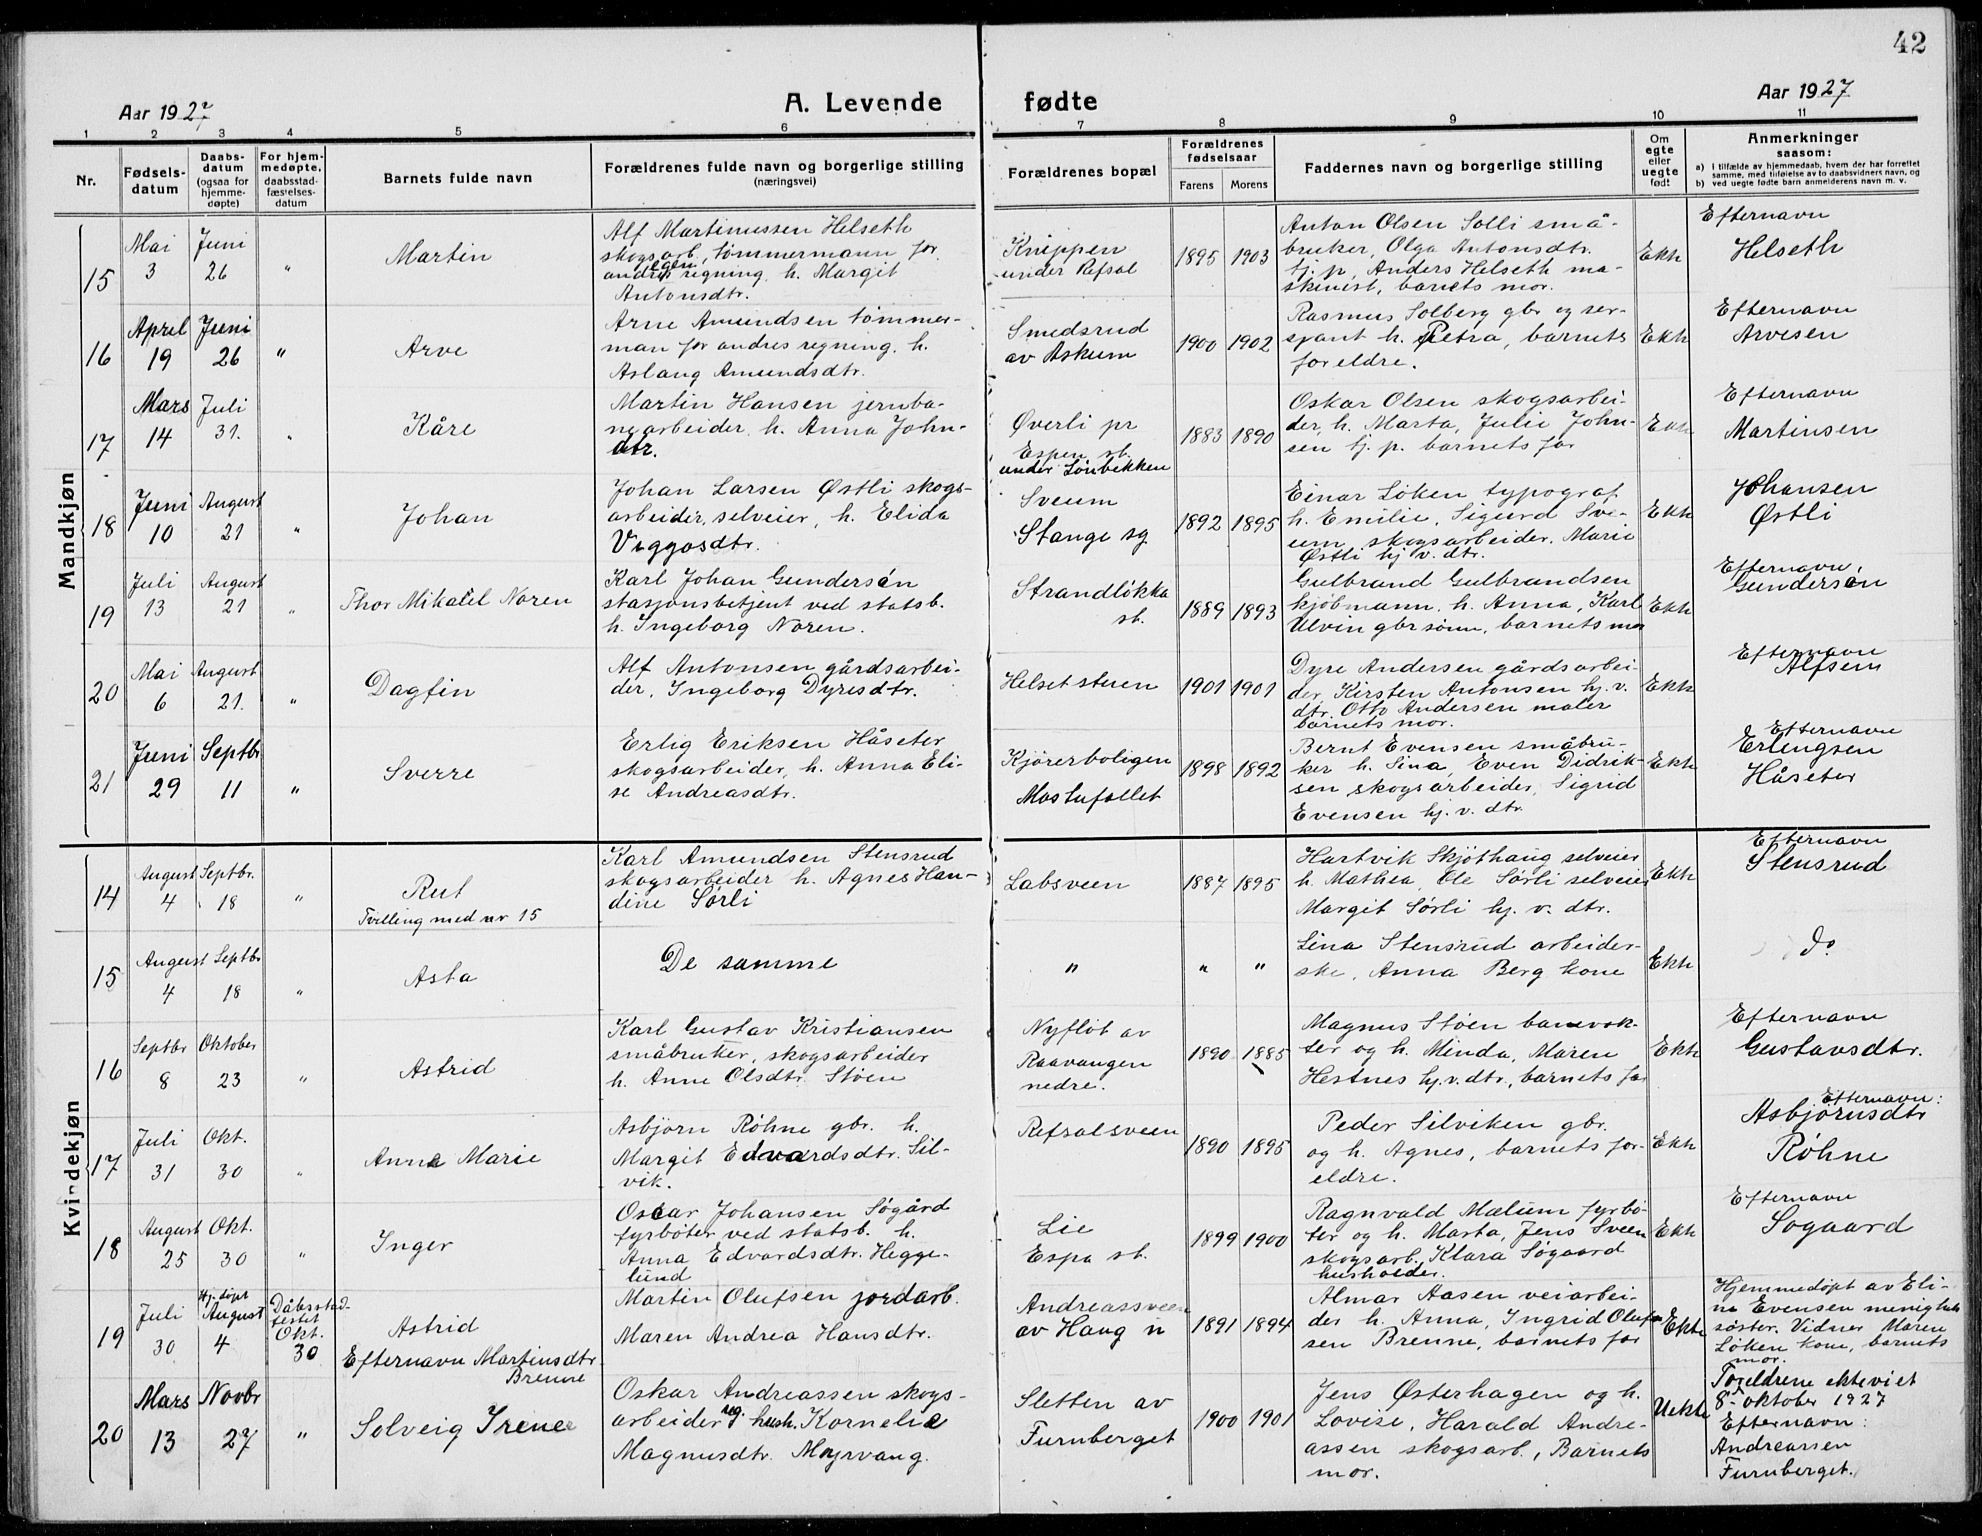 42
Aar 1927
A. Levende fødte
Aar 1927
1 2 3 4 5 6 7 8 9 10 11
Nr.
Fødsels-
datum
Daabs-
datum
(ogsaa for
hjemme-
døpte)
For hjem-
medøpte,
daabsstad-
fæstelses-
datum
Barnets fulde navn
Forældrenes fulde navn og borgerlige stilling
(næringsvei)
Forældrenes bopæl
Forældrenes
fødselsaar
Farens Morens
Faddernes navn og borgerlige stilling
Om
egte
eller
uegte
født
Anmerkninger
saasom:
a) I tilfælde av hjemmedaab, hvem der har forrettet
samme, med tilføielse av to daabsvidners navn, og
b) ved uegte fødte barn anmelderens navn m. v.
Mandkjøn
15
Mai
3
Juni
26
"
Martin
Alf Martinussen Helseth
skogsarb., tømmermann for
egen
andres regning. h. Margit
Antonsdtr.
Knippen
under Refsal
1895 1903
Anton Olsen Solli små-
bruker, Olga Antonsdtr.
tj. p, Anders Helseth ma-
skinist, barnets mor.
Ekte
Efternavn
Helseth
16
April
19
Juni
26
"
Arve
Arne Amundsen tømmer-
man for andres regning. h.
Aslaug Amundsdtr.
Smedsrud
av Askum
1900 1902
Rasmus Solberg gbr og ser-
sjant h. Petra, barnets
foreldre.
Ekte
Efternavn
Arvesen
17
Mars
14
Juli
31.
"
Kåre
Martin Hansen jernba-
nearbeider, h. Anna John-
dtr.
Øverli pr
Espen st.
under Lønbekken
1883 1890
Oskar Olsen skogsarbei-
der, h. Marta, Julie John-
sen tj. p. barnets far
Ekte
Efternavn
Martinsen
18
Juni
10
August
21
"
Johan
Johan Larsen Østli skogs-
arbeider, selveier, h. Elida
Viggosdtr.
Sveum
Stange sg
1892 1895
Einar Løken typograf
h. Emilie, Sigurd Sve-
um skogsarbeider. Marie
Østli hj v. dtr.
Ekte
Johansen
Østli
19
Juli
13
August
21
"
Thor Mikael Noren
Karl Johan Gundersen
stasjonsbetjent ved statsb.
h. Ingeborg Noren.
Strandløkka
st.
1889 1893
Gulbrand Gulbrandsen
kjøbmann. h. Anna, Karl
Ulvin gbr sønn, barnets mor
Ekte
Efternavn,
Gundersen
20
Mai
6
August
21.
"
Dagfin
Alf Antonsen gårdsarbei-
der, Ingeborg Dyresdtr.
Helsetsteren
1901 1901
Dyre Andersen gårdsarbei-
der, Kirsten Antonsen hj. v.
dtr. Otto Andersen maler
barnets mor.
Ekte
Efternavn
Alfsen
21
Juni
29
Septbr
11
"
Sverre
Erlig Eriksen Håseter
skogsarbeider, h. Anna Eli-
se Andreasdtr.
Kjørerboligen
Mostufallet
1898 1892
Bernt Evensen småbru-
ker h. Sina, Even Didrik-
sen skogsarbeider, Sigrid
Evensen hj. v. dtr.
Ekte
Efternavn
Erlingsen
Håseter
Kvindekjøn
14
August
4
Septbr.
18
"
Rut
Tvilling med nr 15
Karl Amundsen Stensrud
skogsarbeider h. Agnes Han-
dine Sørli
Labsveen
1887 1895
Hartvik Skjøthaug selveier
h. Mathea, Ole Sørli selveier
Margit Sørli hj. v. dtr.
Ekte
Efternavn
Stensrud
15
August
4
Septbr
18
"
Asta
De samme
"
" "
Lina Stensrud arbeider-
ske, Anna Berg kone
Ekte
do.
16
Septbr
8
Oktober
23
"
Astrid
Karl Gustav Kristiansen
småbruker, skogsarbeider
h. Anne Olsdtr. Støen
Nyfløt av
Raavangen
nedre.
1890 1885
Magnus Støen banevok-
ter og h. Minda, Maren
Hestnes hj. v. dtr, barnets far
Ekte
Efternavn
Gustavsdtr.
17
Juli
31
Okt.
30
"
Anna Marie
Asbjørn Røhne gbr. h.
Margit Edvardsdtr. Sil-
vik.
Refsalsveen
1890 1895
Peder Silviken gbr.
og h. Agnes, barnets for-
eldre.
Ekte
Efternavn:
Asbjørnsdtr
Røhne
18
August
25
Okt.
30
"
Inger
Oscar Johansen Søgård
fyrbøter ved statsb. h.
Anna Edvardsdtr. Hegge-
lund
Lie
Espa st.
1899 1900
Ragnvald Mælum fyrbø-
ter og h. Marta, Jens Sveen
skogsarb. Klara Søgaard
husholder.
Ekte
Efternavn
Søgaard
19
Juli
30
Hj. døpt
August
4
Dåbsstad-
festet
Okt.
30
Astrid
Efternavn Martinsdtr
Brenne
Martin Olufsen jordarb.
Maren Andrea Hansdtr.
Andreassveen
av Haug n
1891 1894
Almar Aasen veiarbei-
der h. Anna, Ingrid Oluf-
sen Brenne, barnets far
Ekte
Hjemmedøpt av Eli-
ne Evensen menighets
søster. Vidner Maren
Løken kone, barnets
mor.
20
Mars
13
Novbr
27
"
Solveig Irene
Oskar Andreassen skogs-
arbeider og hush. Kornelie
Magnusdtr. Myrvang.
Sletten av
Furuberget
1900 1901
Jens Østerhagen og h.
Lovise, Harald Andre-
assen skogsarb., Barnets
mor.
Uekte
Foreldrene ekteviet
8. oktober 1927
Efternavn:
Andreassen
Furuberget.